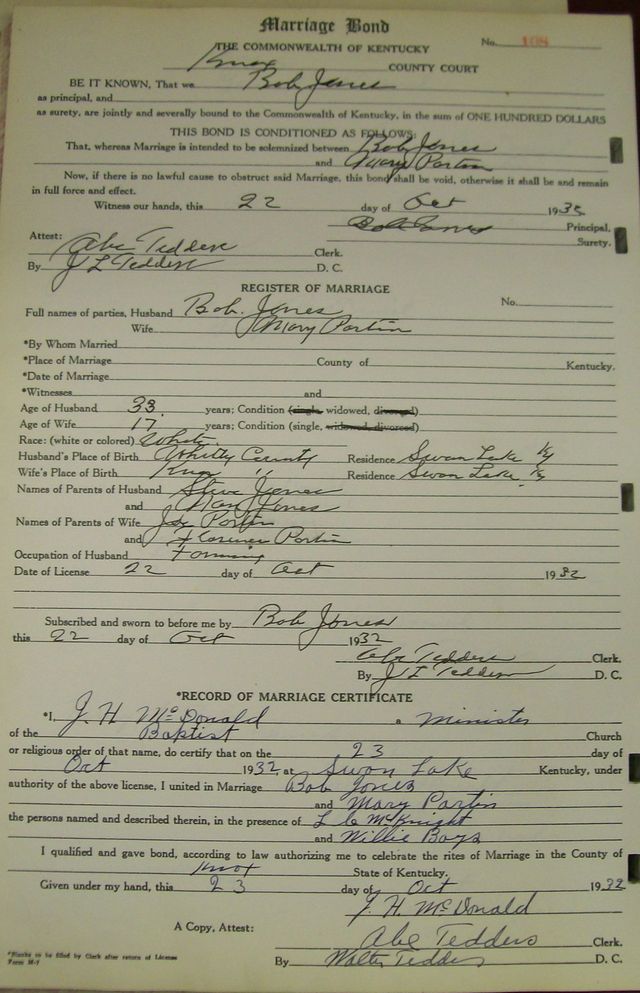 Marriage Bond
No. 108
THE COMMONWEALTH OF KENTUCKY
Knox COUNTY COURT
BE IT KNOWN, That we Bob Jones
as principal, and
as surety, are jointly and severally bound to the Commonwealth of Kentucky, in the sum of ONE HUNDRED DOLLARS
THIS BOND IS CONDITIONED AS FOLLOWS:
That, whereas Marriage is intended to be solemnized between Bob Jones
and Mary Partin
Now, if there is no lawful cause to obstruct said Marriage, this bond shall be void, otherwise it shall be and remain
in full force and effect.
Witness our hands, this 22 day of Oct 1932
Bob Jones Principal,
Surety.
Attest:
Abe Tedders Clerk.
By J L Tedders D. C.
REGISTER OF MARRIAGE
No.
Full names of parties, Husband Bob Jones
Wife Mary Partin
*By Whom Married
*Place of Marriage County of Kentucky.
*Date of Marriage
*Witnesses and
Age of Husband 33 years; Condition (single, widowed, divorced)
Age of Wife 17 years; Condition (single, widowed, divorced)
Race: (white or colored) White
Husband's Place of Birth Whitly County Residence Swan Lake Ky
Wife's Place of Birth Knox " Residence Swan Lake Ky
Names of Parents of Husband Steve Jones
and Mary Jones
Names of Parents of Wife Joe Partin
and Florence Partin
Occupation of Husband Farming
Date of License 22 day of Oct 1932
Subscribed and sworn to before me by Bob Jones
this 22 day of Oct 1932
Abe Tedders Clerk.
By J L Tedders D. C.
*RECORD OF MARRIAGE CERTIFICATE
*I, J. H. McDonald a Minister
of the Baptist Church
or religious order of that name, do certify that on the 23 day of
Oct 1932 at Swan Lake Kentucky, under
authority of the above license, I united in Marriage Bob Jones
and Mary Partin
the persons named and described therein, in the presence of L C McKnight
and Willie Bays
I qualified and gave bond, according to law authorizing me to celebrate the rites of Marriage in the County of
Knox State of Kentucky.
Given under my hand, this 23 day of Oct 1932
J. H. McDonald
A Copy, Attest:
Abe Tedders Clerk.
*Blanks to be filed by Clerk after return of License
Form M-7
By Walter Tedders D. C.